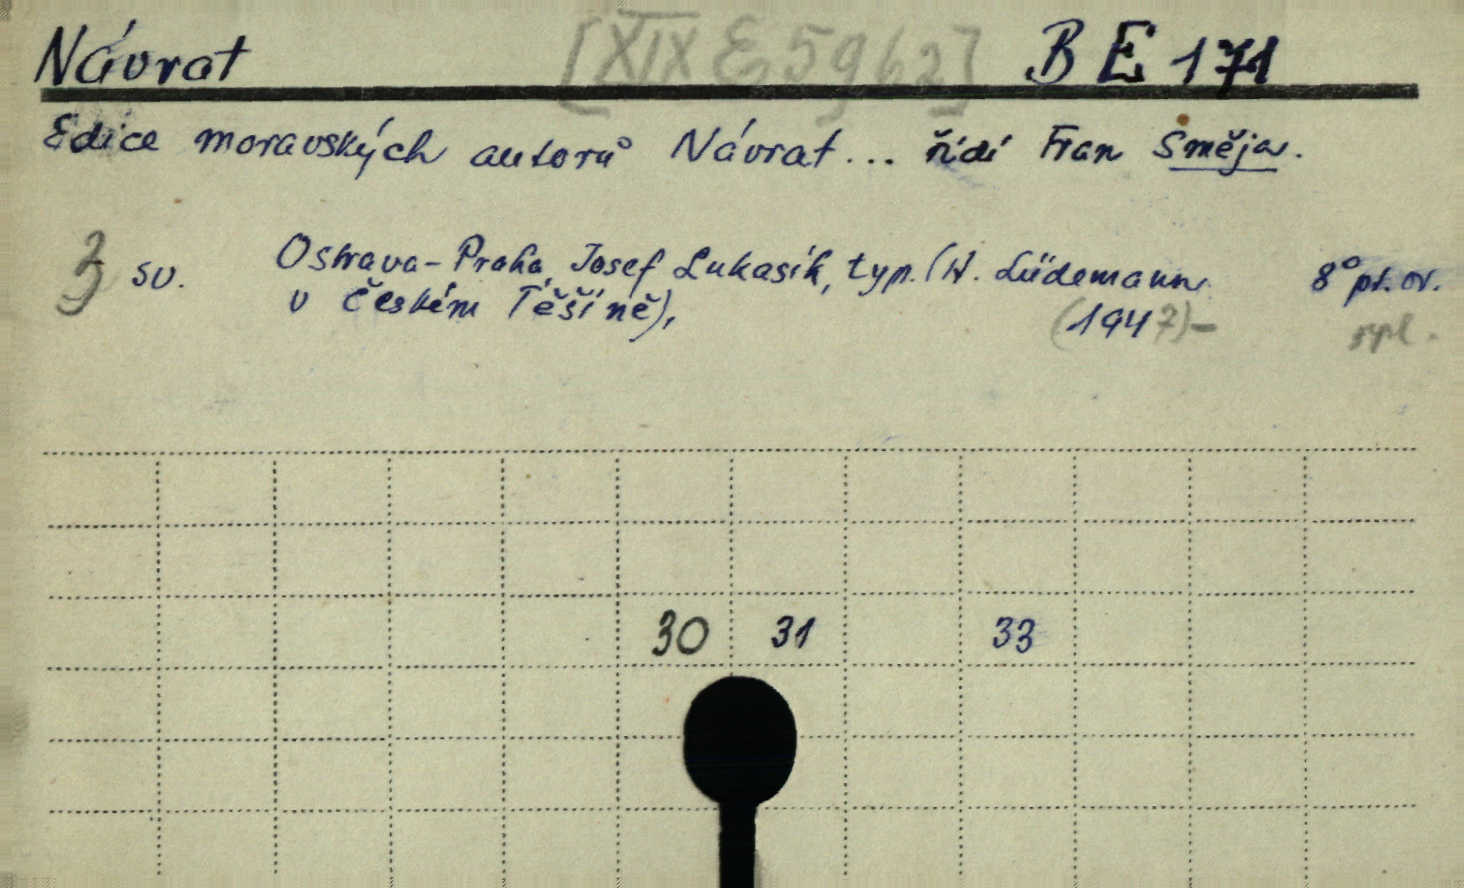 Návrat [XIX E 5962] BE 171
Edice moravských autorů Návrat... řídí Fran Směja.
3 sv. Ostrava-Praha, Josef Lukasík, typ. (W. Lüdemann 8° pt. or.
v Českém Těšíně), (1947)-
30 31 33